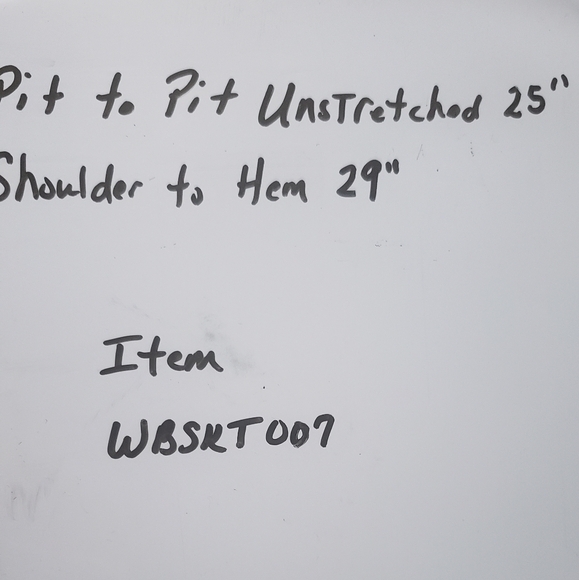 Pit to Pit Unstretched 25"
Shoulder to Hem 29"
Item
WBSKT007